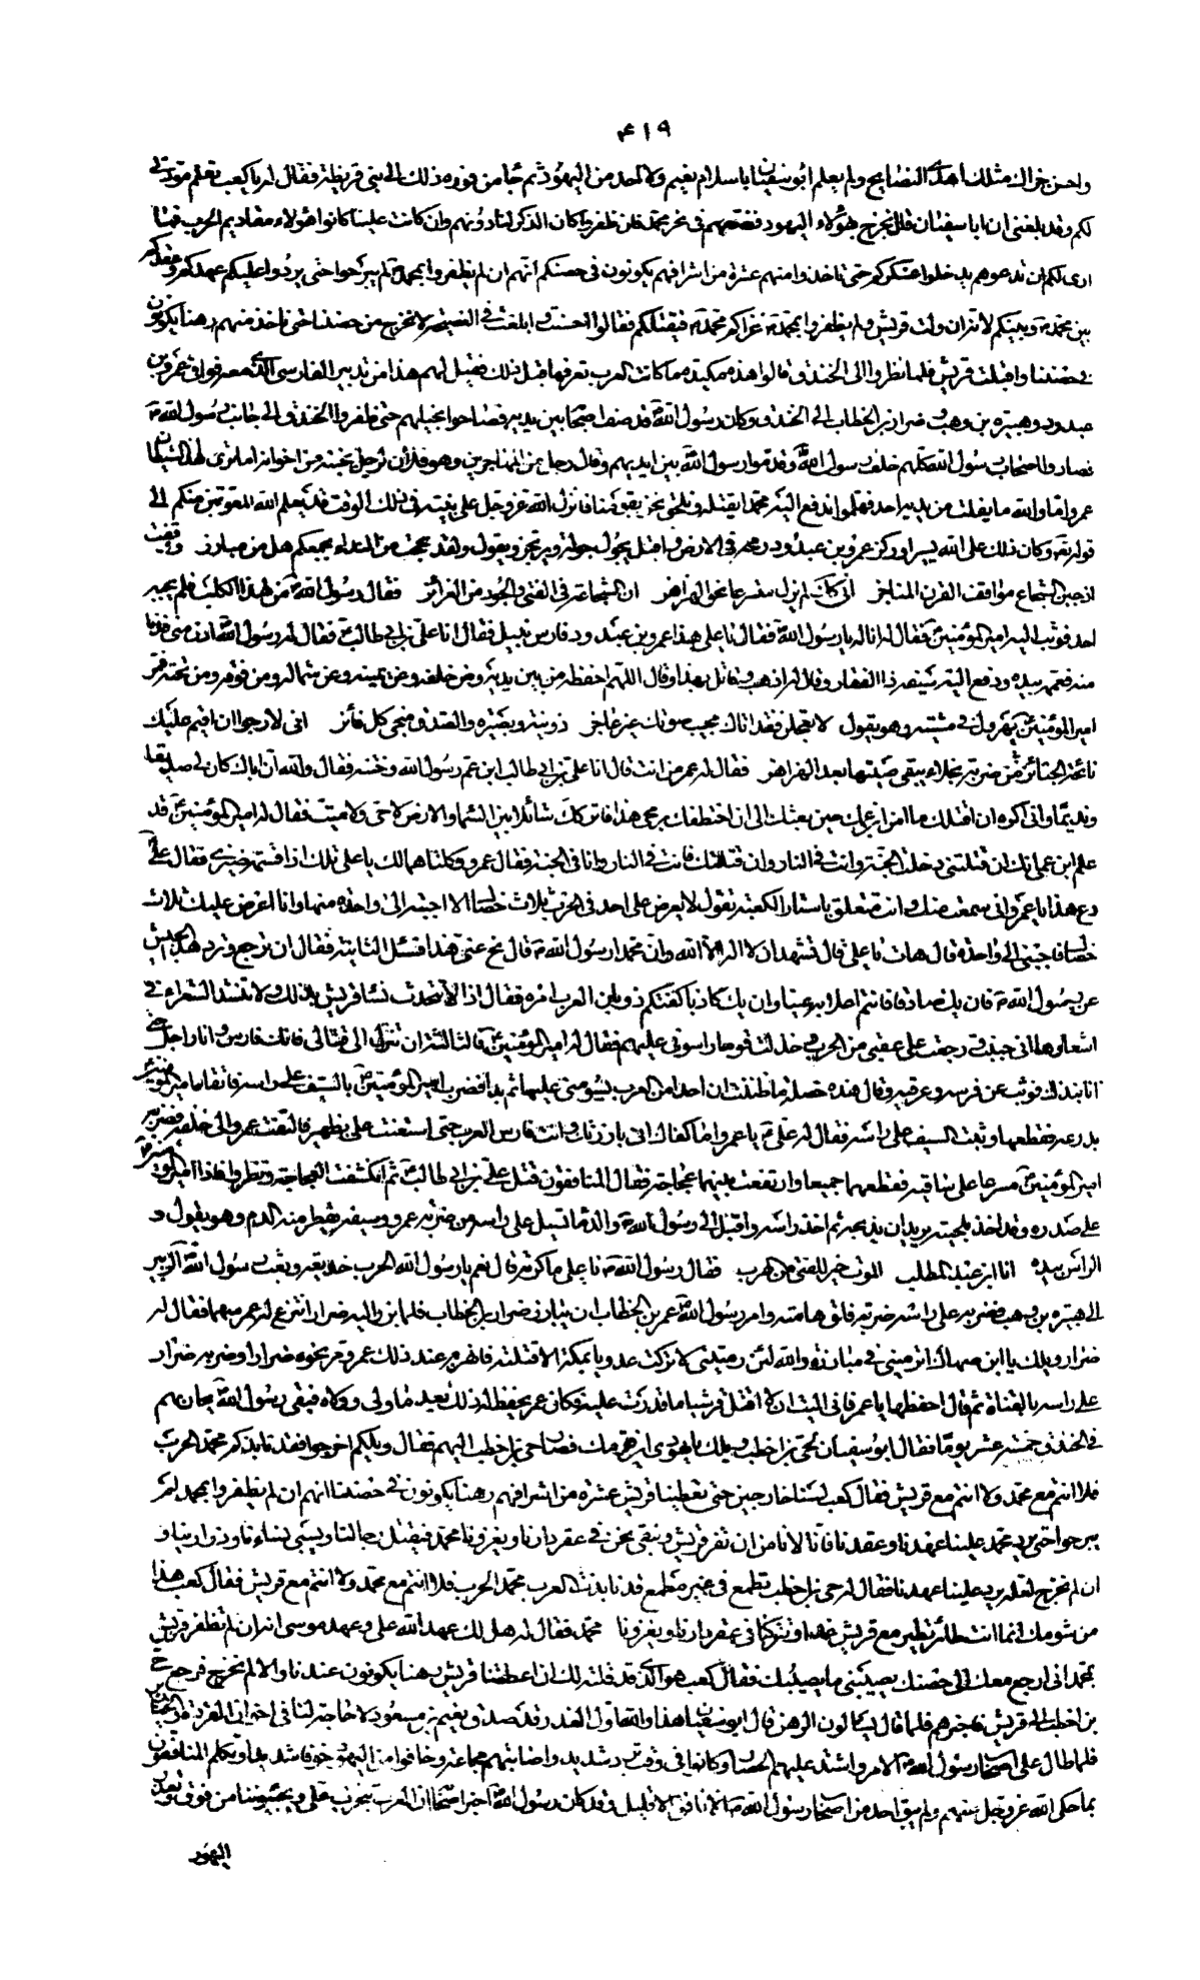 ۴۱۹
واحسن جزاك مثلك اهدى النصايح ولم يعلم ابو سفيان باسلام نعيم ولا احد من اليهود ثم جا من فوره ذلك الى بنى قريظة فقال له يا كعب تعلم مودتى
لكم وقد بلغنى ان ابا سفيان قال نخرج هؤلاء اليهود فنضعهم فى نحر محمد فان ظفروا كان الذكر لنا دونهم وان كانت علينا كانوا هؤلاء مقاديم الحرب فما
ارى لكم ان تدعوهم يدخلوا عسكركم حتى تاخذوا منهم عشرة من اشرافهم يكونون فى حصنكم انهم ان لم يظفروا بمحمد لم يبرحوا حتى يردوا عليكم عهدكم وعقدكم
بين محمد وبينكم لانه ان ولت قريش ولم يظفروا بمحمد غزاكم محمد فيقتلكم فقالوا احسنت وابلغت فى النصيحة لا نخرج من حصننا حتى ناخذ منهم رهنا يكونون
فى حصننا واقبلت قريش فلما نظروا الى الخندق قالوا هذه مكيدة ما كانت العرب تعرفها قبل ذلك فقيل لهم هذا من تدبير الفارسى الذى معه فوافى عمرو بن
عبد ود وهبيرة بن وهب وضرار بن الخطاب الى الخندق وكان رسول الله قد صف اصحابه بين يديه فصاحوا بخيلهم حتى طفروا الخندق الى جانب رسول الله
فصاروا اصحاب رسول الله كلهم خلف رسول الله وقدموا رسول الله بين ايديهم وقال رجل من المهاجرين وهو فلان لرجل بجنبه من اخوانه اما ترى هذا الشيطان
عمرو اما والله ما يفلت من يديه احد فهلموا ندفع اليه محمدا ليقتله ونلحق نحن بقومنا فانزل الله عز وجل على نبيه فى ذلك الوقت قد يعلم الله المعوقين منكم الى
قوله وكان ذلك على الله يسيرا وركز عمرو بن عبد ود رمحه فى الارض واقبل يجول جولة ويرتجز ويقول ولقد بححت من النداء بجمعكم هل من مبارز ووقفت
اذ جبن الشجاع مواقف القرن المناجز انى كذلك لم ازل متسرعا نحو الهزاهز ان الشجاعة فى الفتى والجود من الغرائز فقال رسول الله من لهذا الكلب فلم يجبه
احد فوثب اليه امير المؤمنين فقال انا له يا رسول الله فقال يا على هذا عمرو بن عبد ود فارس يليل فقال انا على بن ابى طالب فقال له رسول الله ادن منى فدنا
منه فعممه بيده ودفع اليه سيفه ذا الفقار وقال له اذهب وقاتل بهذا وقال اللهم احفظه من بين يديه ومن خلفه وعن يمينه وعن شماله ومن فوقه ومن تحته فمر
امير المؤمنين يهرول فى مشيته وهو يقول لا تعجلن فقد اتاك مجيب صوتك غير عاجز ذو نية وبصيرة والصدق منجى كل فائز انى لارجو ان اقيم عليك
نائحة الجنائز من ضربة نجلاء يبقى صيتها بعد الهزاهز فقال له عمرو من انت قال انا على بن ابى طالب ابن عم رسول الله وختنه فقال والله ان اباك كان لى صديقا
ونديما وانى اكره ان اقتلك ما امن ابن عمك حين بعثك الى ان اختطفك برمحى هذا فاتركك شائلا بين السماء والارض لا حى ولا ميت فقال له امير المؤمنين قد
علم ابن عمى انك ان قتلتنى دخلت الجنة وانت فى النار وان قتلتك فانت فى النار وانا فى الجنة فقال عمرو كلتاهما لك يا على تلك اذا قسمة ضيزى فقال على
دع هذا يا عمرو انى سمعت منك وانت متعلق باستار الكعبة تقول لا يعرض على احد فى الحرب ثلاث خصال الا اجبته الى واحدة منها وانا اعرض عليك ثلاث
خصال فاجبنى الى واحدة قال هات يا على قال تشهد ان لا اله الا الله وان محمدا رسول الله قال نح عنى هذا فسئل الثانية فقال ان ترجع وترد هذا الجيش
عن رسول الله فان يك صادقا فانتم اعلا به عينا وان يك كاذبا كفتكم ذؤبان العرب امره فقال اذا لا تتحدث نساء قريش بذلك ولا تنشد الشعراء فى
اشعارها انى جبنت ورجعت على عقبى من الحرب وخذلت قوما راسونى عليهم فقال له امير المؤمنين فالثالثة ان تنزل الى قتالى فانك فارس وانا راجل حتى
انابذك فوثب عن فرسه وعرقبه وقال هذه خصلة ما ظننت ان احدا من العرب يسومنى عليها ثم بدا فضرب امير المؤمنين بالسيف على راسه فاتقاه امير المؤمنين
بدرعه فقطعها وثبت السيف على راسه فقال له على يا عمرو اما كفاك انى بارزتك وانت فارس العرب حتى استعنت على بظهير فالتفت عمرو الى خلفه فضربه
امير المؤمنين مسرعا على ساقيه فقطعهما جميعا وارتفعت بينهما عجاجة فقال المنافقون قتل على بن ابى طالب ثم انكشفت العجاجة ونظروا فاذا امير المؤمنين
على صدره وقد اخذ بلحيته يريد ان يذبحه ثم اخذ راسه واقبل الى رسول الله والدماء تسيل على راسه من ضربة عمرو وسيفه يقطر منه الدم وهو يقول و
الراس بيده انا ابن عبد المطلب الموت خير للفتى من الهرب فقال رسول الله يا على ماكرته قال نعم يا رسول الله الحرب خديعة وبعث رسول الله الزبير
الى هبيرة بن وهب فضربه على راسه ضربة فلق هامته وامر رسول الله عمر بن الخطاب ان يبارز ضرار بن الخطاب فلما برز اليه ضرار انتزع له عمر سهما فقال له
ضرار ويلك يا ابن صهاك اترمينى فى مبارزة والله لئن رميتنى لا تركت عدويا بمكة الا قتلته فانهزم عند ذلك عمر ومر نحوه ضرار وضربه ضرار
على راسه بالقناة ثم قال احفظها يا عمر فانى اليت ان لا اقتل قرشيا ما قدرت عليه وكان عمر يحفظ له ذلك بعد ما ولى وولاه فبقى رسول الله يحاربهم
فى الخندق خمسة عشر يوما فقال ابو سفيان لحى بن اخطب ويلك يا يهودى اين قومك فصار حى بن اخطب اليهم فقال ويلكم اخرجوا فقد نابذكم محمد الحرب
فلا انتم مع محمد ولا انتم مع قريش فقال كعب لسنا خارجين حتى تعطينا قريش عشرة من اشرافهم رهنا يكونون فى حصننا انهم ان لم يظفروا بمحمد لم
يبرحوا حتى يرد محمد علينا عهدنا وعقدنا فانا لا نامن ان تفر قريش ونبقى نحن فى عقر دارنا ويغزونا محمد فيقتل رجالنا ويسبى نساءنا وذرارينا و
ان لم نخرج لعله يرد علينا عهدنا فقال له حى بن اخطب تطمع فى غير مطمع قد نابذت العرب محمدا الحرب فلا انتم مع محمد ولا انتم مع قريش فقال كعب هذا
من شومك انما انت طائر تطير مع قريش غدا وتتركنا فى عقر دارنا ويغزونا محمد فقال له هل لك عهد الله على وعهد موسى انه ان لم تظفر قريش
بمحمد انى ارجع معك الى حصنك يصيبنى ما يصيبك فقال كعب هو الذى قد قلته لك ان اعطتنا قريش رهنا يكونون عندنا والا لم نخرج فرجع حى
بن اخطب الى قريش فاخبرهم فلما قال يسالون الرهن قال ابو سفيان هذا والله اول الغدر قد صدق نعيم بن مسعود لا حاجة لنا فى اخوان القردة والخنازير
فلما طال على اصحاب رسول الله الامر واشتد عليهم الحصار وكانوا فى وقت برد شديد واصابتهم مجاعة وخافوا من اليهود خوفا شديدا وتكلم المنافقون
بما حكى الله عز وجل عنهم ولم يبق احد من اصحاب رسول الله الا نافق الا قليل وقد كان رسول الله اخبر اصحابه ان العرب تتحزب على ويجيئوننا من فوق وتغدر
اليهود